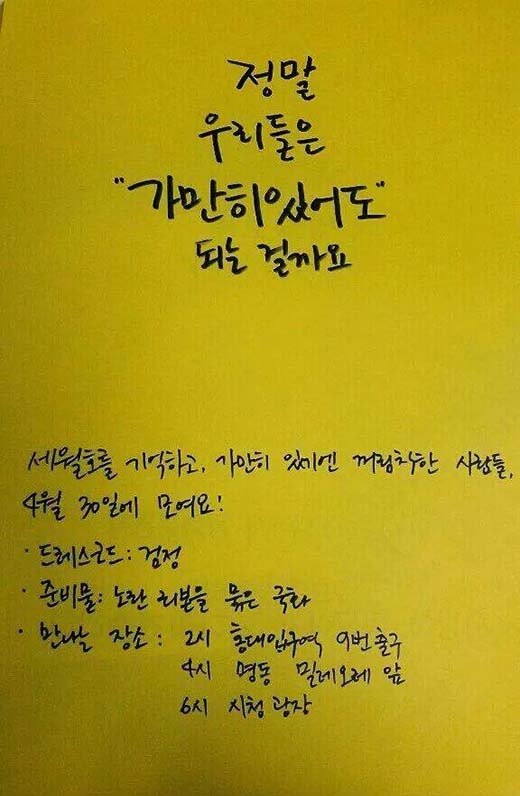 정말
우리들은
"가만히있어도"
되는 걸까요
세월호를 기억하고, 가만히 있기엔 꺼림칙한 사람들,
4월 30일에 모여요!
· 드레스코드: 검정
· 준비물: 노란 리본을 묶은 국화
· 만나는 장소: 2시 홍대입구역 9번출구
4시 명동 밀레오레 앞
6시 시청 광장